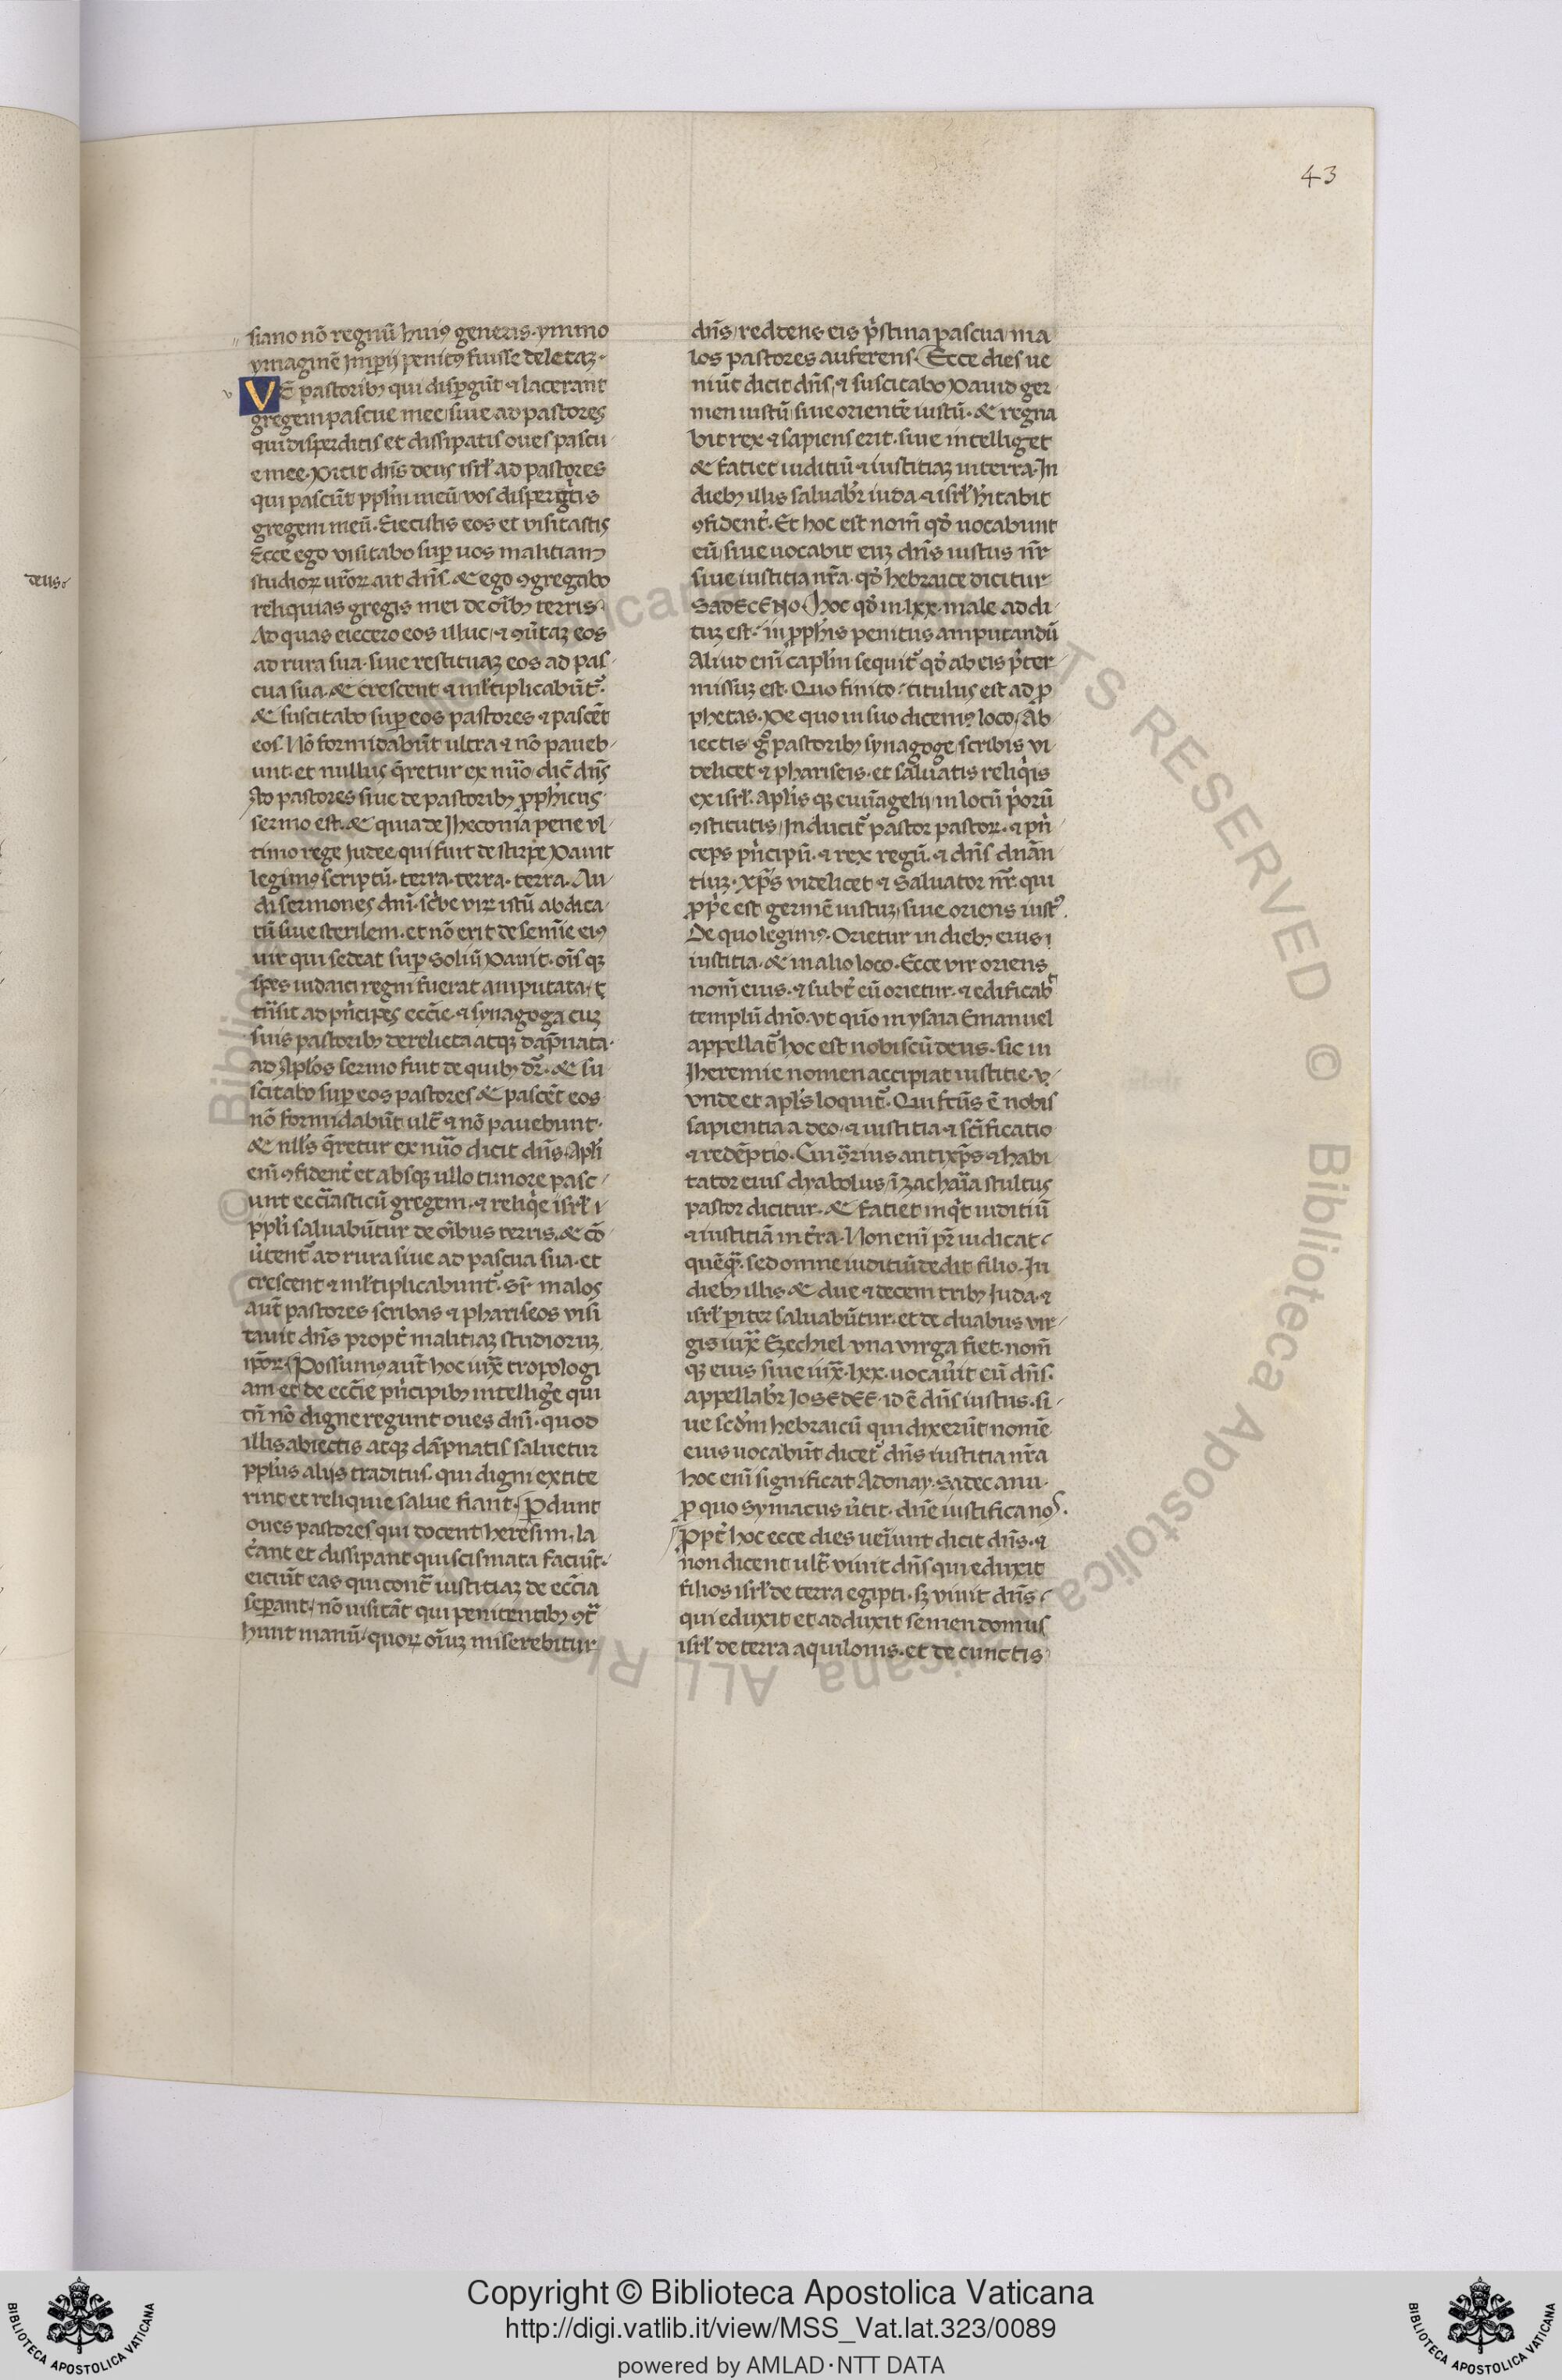 43
siano nõ regnũ huiꝰ generis. ymmo
ymaginẽ Jmperij penitꝰ fuisse deletaꝫ.
VE pastoribꝫ qui dispergũt ⁊ lacerant
gregem pascue mee siue ad pastores
qui disperditis et dissipatis oues pascu
e mee. Dicit dñs deus isrł ad pastores
qui pascũt pplm̃ meũ vos dispergitis
gregem meũ. Eiecistis eos et visitastis
Ecce ego visitabo suꝑ uos malitiam
studioꝝ ur̃oꝝ ait dñs. & ego ꝯgregabo
reliquias gregis mei de oĩbꝫ terris
Ad quas eiecero eos illuc. ⁊ ꝯũtaꝫ eos
ad rura sua. siue restituaꝫ eos ad pas
cua sua. & crescent ⁊ ml̃tiplicabũt᷑.
& suscitabo suꝑ eos pastores ⁊ pascẽt
eos. Nõ formidabũt ultra ⁊ nõ paueb
unt. et nullus q̃retur ex nũo dic̃ dñs
Ad pastores siue de pastoribꝫ ꝓphicus
sermo est. & quia de Jheconia pene vl
timo rege Judee qui fuit de stirpe Dauit
legimꝰ scriptũ. terra. terra. terra. Au
di sermones dñi. sc̃be vir istũ abdica
tũ siue sterilem. et nõ erit de semĩe eiꝰ
uir qui sedeat suꝑ soliũ Dauit. oĩs qꝫ
spes iudaici regni fuerat amputata. ⁊
trñsit ad pñcipes eccĩe. ⁊ synagoga cuꝫ
suis pastoribꝫ derelicta atqꝫ dãpnata.
ad Apl̃os sermo fuit de quibꝫ dr̃. & su
scitabo suꝑ eos pastores & pascẽt eos
nõ formidabũt ult̃ ⁊ nõ pauebunt.
& nll̃s q̃retur ex nũo dicit dñs. Apl̃i
enĩ ꝯfident᷑ et absqꝫ ullo timore pasc
unt eccl̃asticũ gregem. ⁊ reliq̃e isrł i
ppl̃i saluabũtur de oĩbus terris. & cõ
ũtent᷑ ad rura siue ad pascua sua. et
crescent ⁊ ml̃tiplicabunt᷑. Sꝫ malos
aut̃ pastores scribas ⁊ phariseos visi
tauit dñs propt̃ malitiaꝫ studioruꝫ
ip̃oꝝ. Possumꝰ aut̃ hoc iux̃ tropologi
am et de eccĩe pñcipibꝫ intellig̃e qui
tñ nõ digne regunt oues dñi. quod
illis abiectis atqꝫ dãpnatis saluetur
ppl̃us alijs traditus. qui digni extite
rint et reliquie salue fiant. Ꝑdunt
oues pastores qui docent heresim. la
c̃ant et dissipant qui scismata faciũt.
eiciũt eas qui cont̃ iustitiaꝫ de eccĩa
seꝑant. nõ uisitãt qui penitentibꝫ ꝯt̃
hunt manũ. quoꝝ oĩuꝫ miserebitur
dñs reddens eis p̃stina pascua ma
los pastores auferens. Ecce dies ue
niũt dicit dñs. ⁊ suscitabo Dauid ger
men iustũ siue orientẽ iustũ. & regna
bit rex ⁊ sapiens erit. siue intelliget
& faciet iuditiũ ⁊ iustitiaꝫ in terra. In
diebꝫ illis saluabr̃ iuda ⁊ isrł h̃itabit
ꝯfident᷑. Et hoc est nom̃ qð uocabunt
eũ siue uocabit euꝫ dñs iustus nr̃
siue iustitia nr̃a. qð hebraice dicitur
SADECENO. Hoc qð in. lxx. male addi
tuꝫ est. in ꝓph̃is penitus amputandũ
Aliud enĩ capl̃m sequit᷑ qð ab eis p̃ter
missuꝫ est. Quo finito. titulus est ad ꝓ
phetas. De quo in suo dicemꝰ loco. Ab
iectis gͦ pastoribꝫ synagoge scribis vi
delicet ⁊ phariseis. et saluatis reliq̃is
ex isrł. apl̃is qꝫ euũagelij in locũ p̃orũ
ꝯstitutis. Inducit᷑ pastor pastoꝝ. ⁊ pñ
ceps pñcipũ. ⁊ rex regũ. ⁊ dñs dñan
tiuꝫ. xp̃s videlicet ⁊ saluator nr̃. qui
ꝓp̃e est germẽ iustuꝫ siue oriens iustꝰ.
De quo legimꝰ. Orietur in diebꝫ eius
iustitia. & in alio loco. Ecce vir oriens
nom̃ eius. ⁊ subt̃ eũ orietur. ⁊ edificabᵗ
templũ dño. vt quõ in ysaia Emanuel
appellat᷑ hoc est nobiscũ deus. sic in
Jheremie nomen accipiat iustitie. v
vnde et apl̃s loquit᷑. Qui fc̃us ẽ nobis
sapientia a deo. ⁊ iustitia ⁊ sc̃ificatio
⁊ redẽptio. Cui ꝯ̃rius antixp̃s ⁊ habi
tator eius dyabolus ĩ zachar̃ia stultus
pastor dicitur. & faciet inq̃t iuditiũ
⁊ iustitiã in t̃ra. Non enĩ pr̃ iudicat
quẽqᷓ. sed omne iuditiũ dedit filio. In
diebꝫ illis & due ⁊ decem tribꝫ Juda. ⁊
isrł pariter saluabũtur. et de duabus vir
gis iux̃ Ezechiel vna virga fiet. nom̃
qꝫ eius siue iux̃. lxx. uocau̾it eũ dñs.
appellabr̃ JOSEDEE. id ẽ dñs iustus. si
ue scðm hebraicũ qui dixerũt nomẽ
eius uocabũt dicet᷑ dñs iustitia nr̃a
hoc enĩ significat Adonay. Sadecanu.
ꝓ quo symacus ũtit. dñe iustifica nos.
Propt̃ hoc ecce dies ueĩunt dicit dñs. ⁊
non dicent ult̃ viuit dñs qui eduxit
filios isrł de terra egipti. sꝫ viuit dñs
qui eduxit et adduxit semen domus
isrł de terra aquilonis. et de cunctis
deus
Copyright © Biblioteca Apostolica Vaticana
http://digi.vatlib.it/view/MSS_Vat.lat.323/0089
powered by AMLAD · NTT DATA
BIBLIOTECA APOSTOLICA VATICANA
BIBLIOTECA APOSTOLICA VATICANA